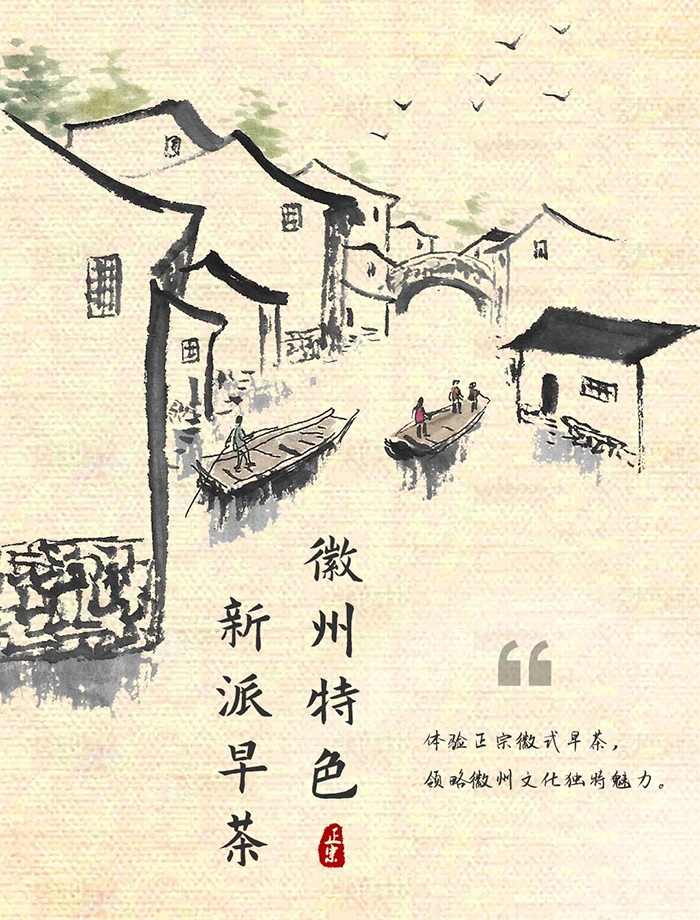 徽州特色
新派早茶
正宗
体验正宗徽式早茶，
领略徽州文化独特魅力。